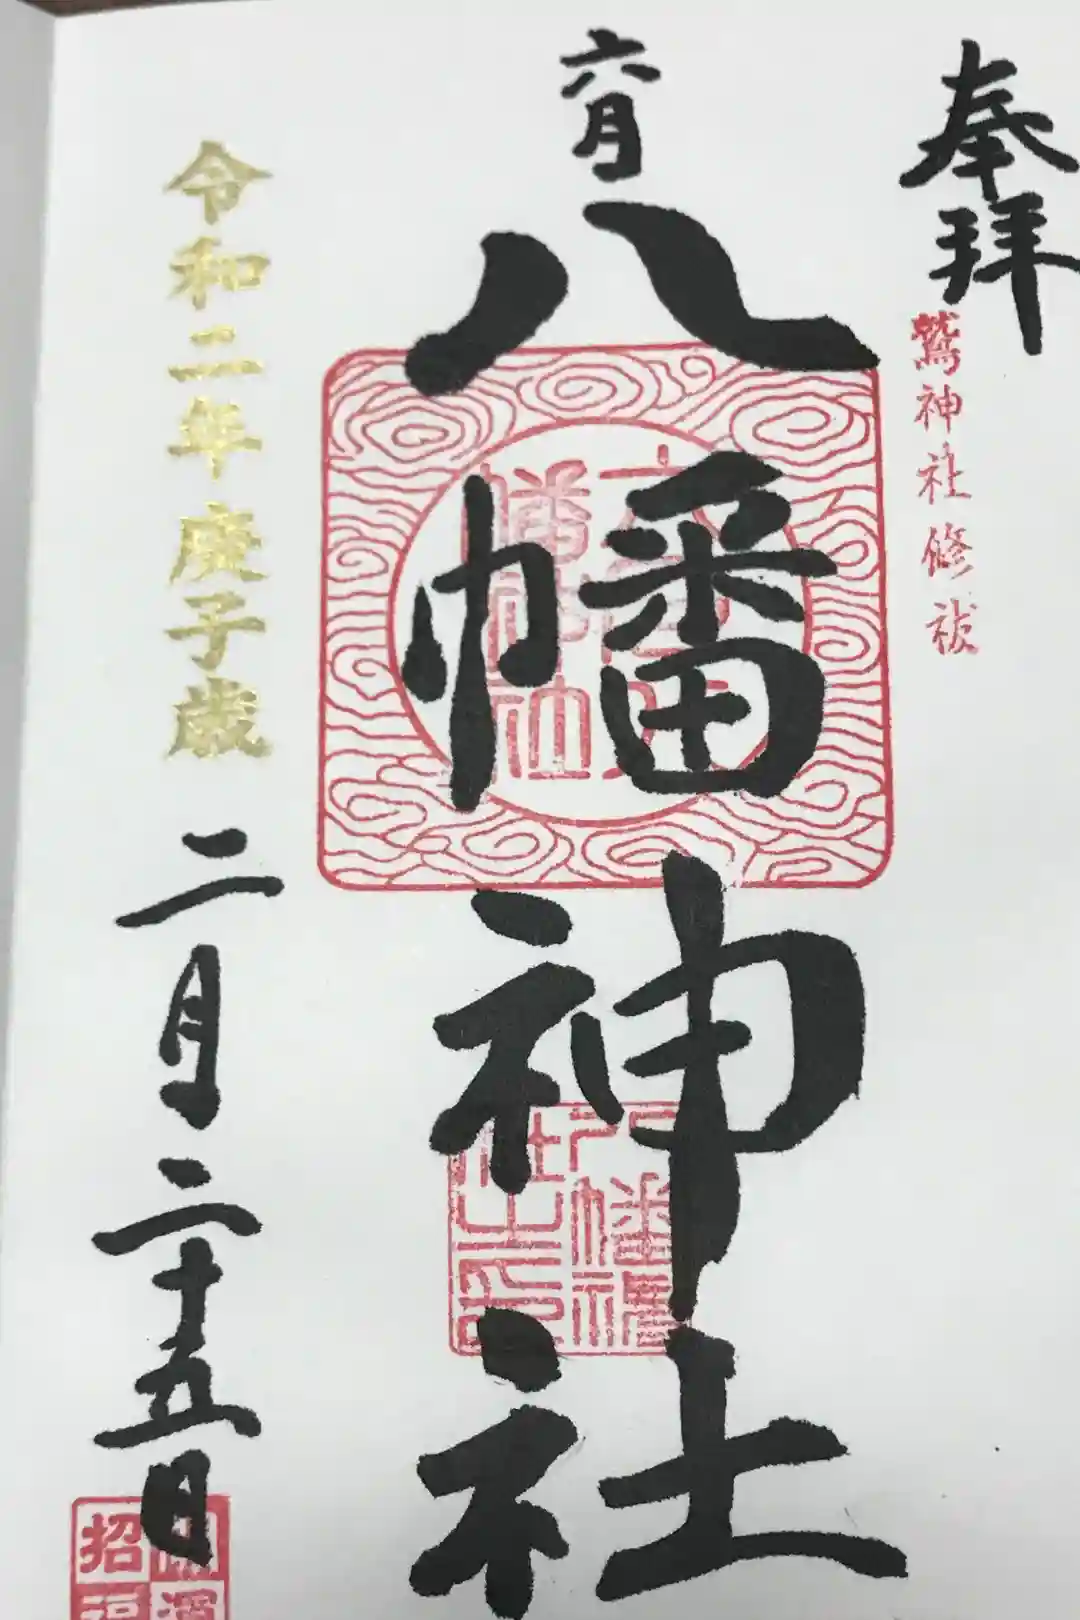 奉拝
鷲神社修祓
六月
八幡神社
八幡神
社之印
令和二年庚子歳
二月二十五日
招福